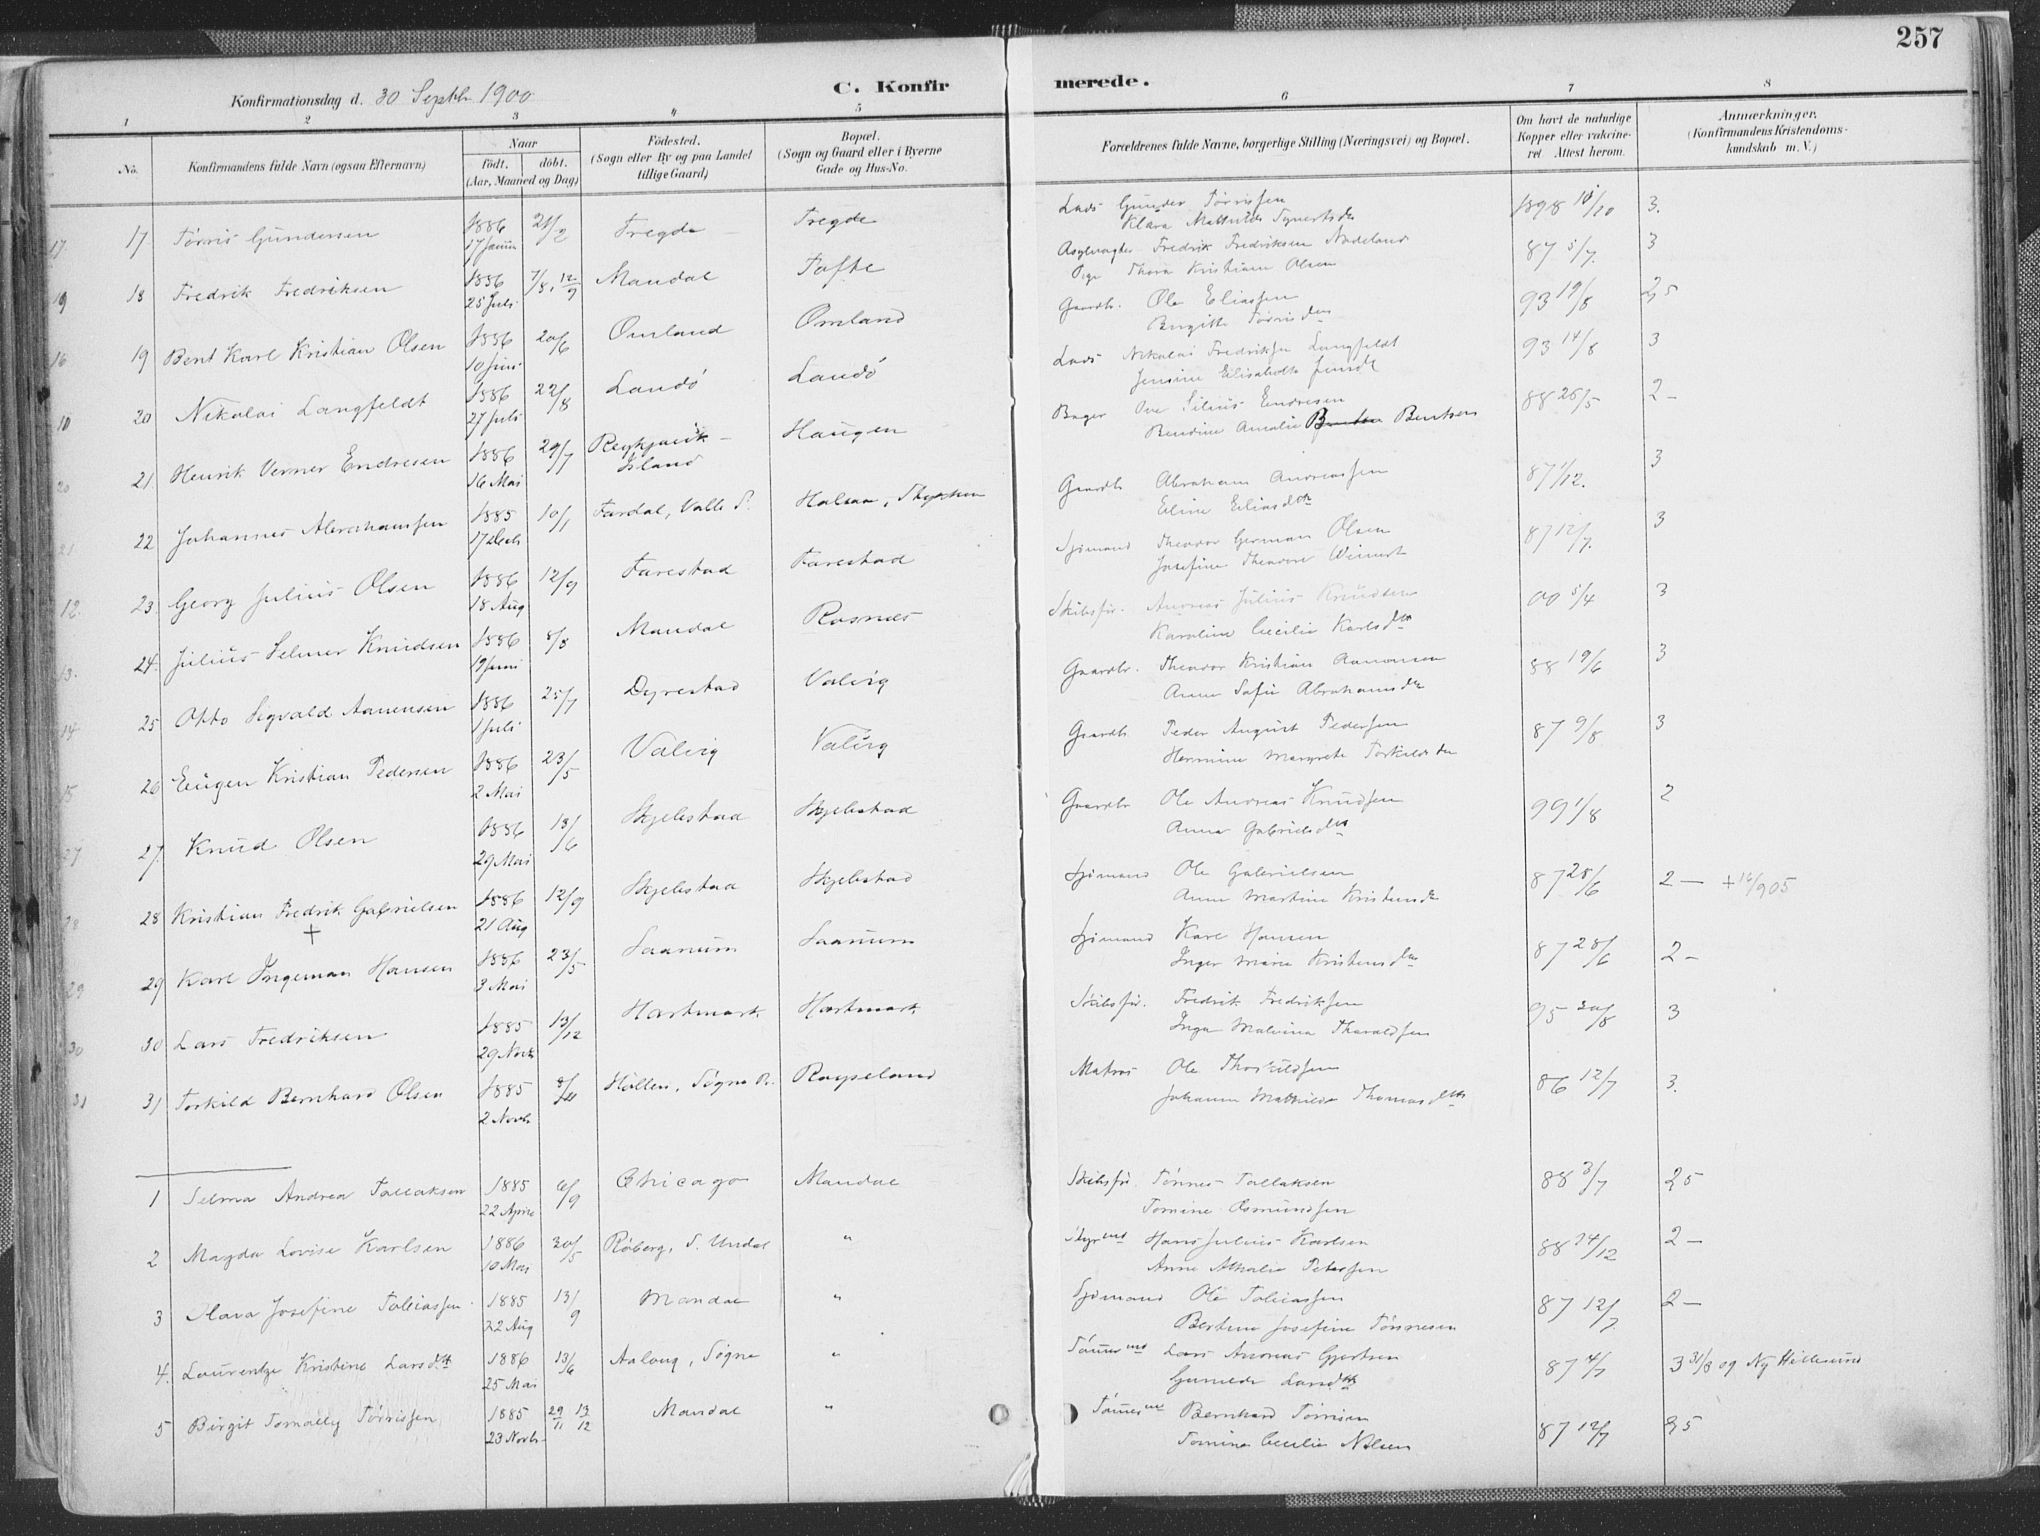 257
Konfirmationsdag d. 30 Septbr 1900
C. Konfirmerede.
1 2 3 4 5 6 7 8
No.
Konfirmandens fulde Navn (ogsaa Efternavn)
Naar
födt. döbt.
(Aar, Maaned og Dag)
Födested.
(Sogn eller By og paa Landet
tillige Gaard)
Bopæl.
(Sogn og Gaard eller i Byerne
Gade og Hus-No.
Forældrenes fulde Navne, borgerlige Stilling (Næringsvei) og Bopæl.
Om havt de naturlige
Kopper eller vakcine-
ret. Attest herom.
Anmærkninger.
(Konfirmandens Kristendoms-
kundskab m. V.)
17. 17 Tørris Gundersen 1886 17 Januar 21/2 Tregde Tregde Lods Gunder Tørrissen 1898 18/10 3.
Klara Mathilde
19 18 Fredrik Fredriksen 1886 25 Juli 7/8, 12/9 Mandal Tofte Fredrik Fredriksen Nodeland 87 5/7. 3
Pige Thora Kristiane Olsen
16 19 Bent Karl Kristian Olsen 1886 10 Juni 20/6 Omland Omland Gaardbr. Ole Eliassen 93 19/8 2,5
Birgitte Tørrisdtr
10 20 Nikolai Langfeldt 1886 27 Juli 22/8 Landö Landö Lods Nikolai Fredriksen Langfeldt 93 14/8 3
Jensine Elisabeth
20 21 Henrik Verner Endresen 1886 16 Mai 29/7 Reykjavik - Island Haugen Bager Ove Silius Endresen 88 26/5 2-
Bendine Amalie Bentsen
21 22 Johannes Abrahamsen 1885 17 Decb 10/1 Fardal, Valle S. Halsaa, Gaardb Abraham Andreassen 87 1/12. 3
Eline Eliasdtr
12. 23. Georg Julius Olsen 1886 18 Aug 12/9 Farestad Farestad Sjömand Theodor German Olsen 87 12/7. 3
Josefine Theodore
13. 24. Julius Selmer Knudsen 1886 19 Juni 8/8 Mandal Rosnæs Skibsför. Andreas Julius Knudsen 00 5/4 3
Karoline Cecilie Karlsdtr
14 25 Otto Sigvald Aanensen 1886 1 Juli 25/7 Dyrestad Valvig Gaardbr. Theodor Kristian Aanensen 88 19/6 3
Anne Sofie Abrahamsdtr
15 26 Eugen Kristian Pedersen 1886 2 Mai 23/5 Valvig Valvig Gaardb Peder August Pedersen 87 9/8 3
Hermine Margrete Torkildsdtr
27 27. Knud Olsen 1886 29 Mai 13/6 Skjebstad Skjebstad Gaardbr Ole Andreas Knudsen 99 1/8 2
Anne Gabrielsdtr
28 28 Kristian Fredrik Gabrielsen 1886 21 Aug 12/9 Skjebstad Skjebstad Sjömand Ole Gabrielsen 87 28/6 2 - + 16/9 05
+
Anne Martine Kristensdtr
29 29 Karl Ingeman Hansen 1886 3 Mai 23/5 Saanum Saanum Sjömand Karl Hansen 87 28/6 2 -
Inger Marie Kristensdtr
30 30 Lars Fredriksen 1885 29 Novb 13/12 Hartmark Hartmark Skibsför. Fredrik Fredriksen 95 20/8 3
Inga Malvina Tharaldsen
31 31 Torkild Bernhard Olsen 1885 2 Novb Höllen, Søgne P. Røyseland Matros Ole Thorkildsen 86 12/7 3.
Johanne Mathilde Thomasdtr
1 Selma Andrea Tallaksen 1885 22 April 6/9 Chicago Mandal Skibsför. Tønnes Tallaksen 88 3/7 2,5
Tomine Osmundsen
2 Magda Lovise Karlsen 1886 10 Mai 30/5 Röberg, S. Undal " Styrmd Hans Julius Karlsen 88 14/12 2 -
Anne Athalie Petersen
3 Clara Josefine Tobiassen 1885 22 Aug 13/9 Mandal " Sjömand Ole Tobiassen 87 12/7. 2 -
Bertine Josefine Tönnesen
4. Laurentze Kristine Larsdtt 1886 25 Mai 13/6 Søgne " Tömmermd Lars Andreas Gjertsen 87 4/7 3 31/8 og Ny Hillesund
Gunilde Larsdtr
5 Birgit Tomally Tørrissen 1885 23 Novb 29/11 13/12 Mandal " Tömmermd Bernhard Tørrisen 87 12/7 2,5
Tomine Cecilie Nilsen